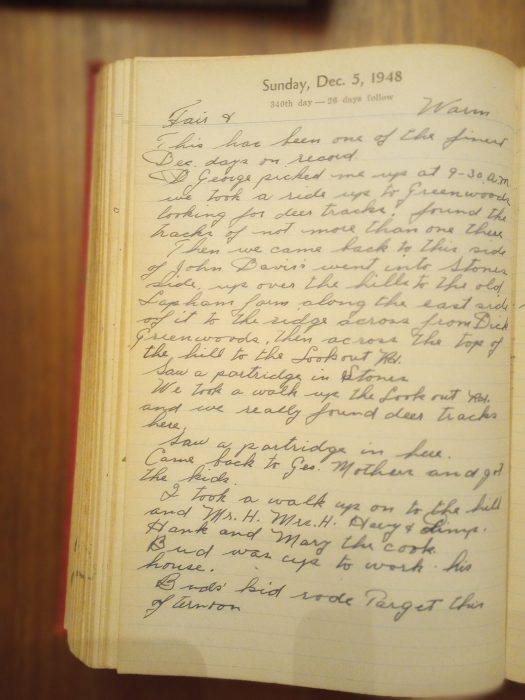 Sunday, Dec. 5, 1948
340th day — 26 days follow
Fair & Warm
This has been one of the finest
Dec. days on record
George picked me up at 9-30 a.m.
we took a ride up to Greenwoods
looking for deer tracks, found the
tracks of not more than one there
Then we came back to this side
of John Davis's went into Stones
side, up over the hills to the old
Lapham farm along the east side
of it to the ridge across from Dick
Greenwoods, then across the top of
the hill to the Lookout Rd.
Saw a partridge in Stones
We took a walk up the Lookout Rd.
and we really found deer tracks
here.
Saw a partridge in here.
Came back to Geo. Mothers and got
the kids.
I took a walk up on to the hill
and Mr. H. Mrs. H. &
Hank and Mary the cook
Bud was up to work his
house.
Buds' kid rode Target this
afternoon